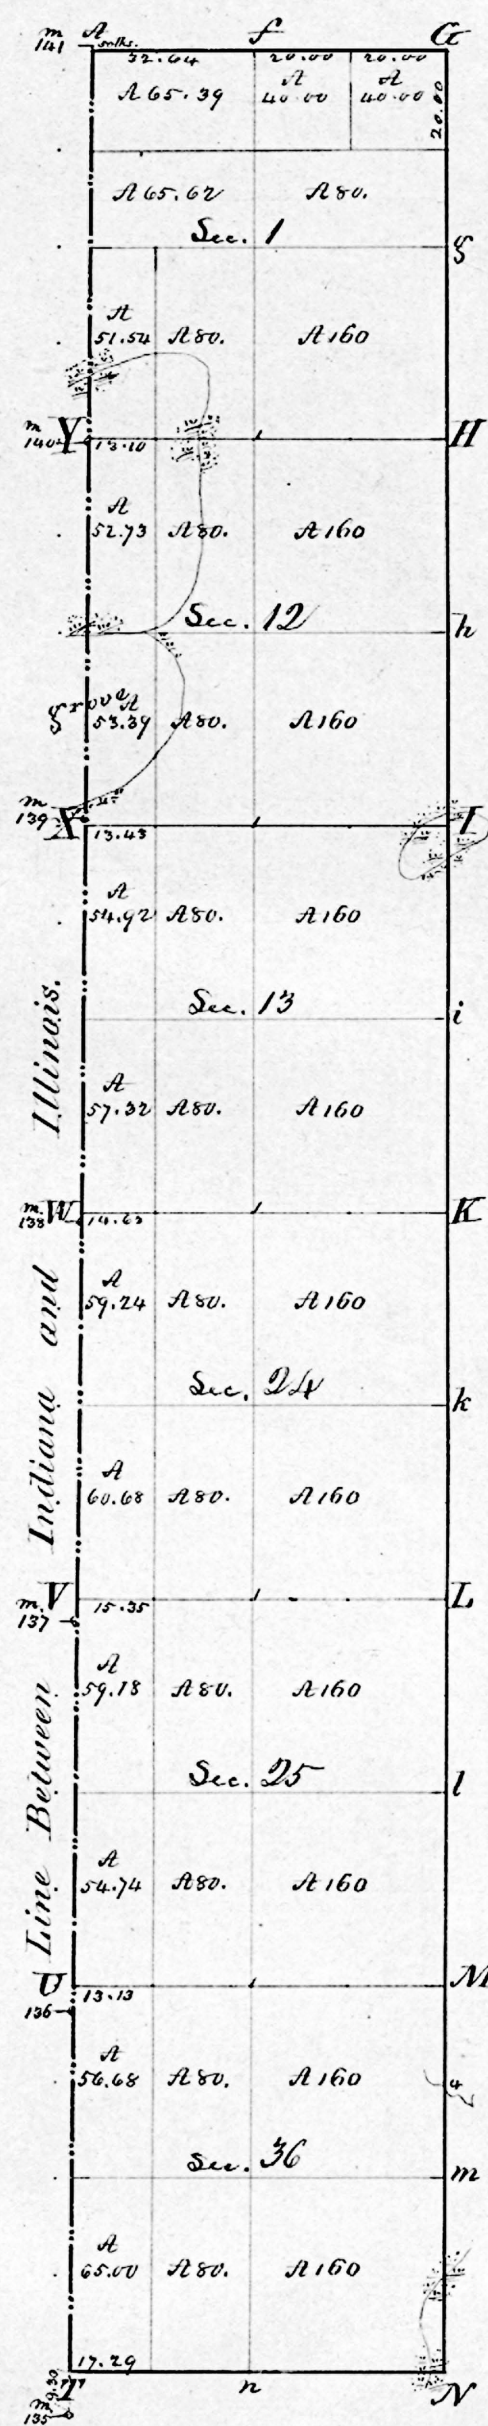 m 141 A f G
32.64 20.00 20.00
A 65.39 A 40.00 A 40.00 20.00
A 65.62 A 80.
Sec. 1 g
A
51.54 A 80. A 160
m 140 Y 13.10 H
A
52.73 A 80. A 160
Sec. 12 h
A
53.39 A 80. A 160
m 139 X 13.43 I
A
54.92 A 80. A 160
Sec. 13 i
A
57.32 A 80. A 160
m. 138 W 14.63 K
A
59.24 A 80. A 160
Sec. 24 k
A
60.68 A 80. A 160
m. 137 V 15.35 L
A
59.18 A 80. A 160
Sec. 25 l
A
54.74 A 80. A 160
U 13.13 M
136
A
56.68 A 80. A 160
4
Sec. 36 m
A
65.00 A 80. A 160
17.29
9.30 T n N
m 135
Line Between Indiana and Illinois.